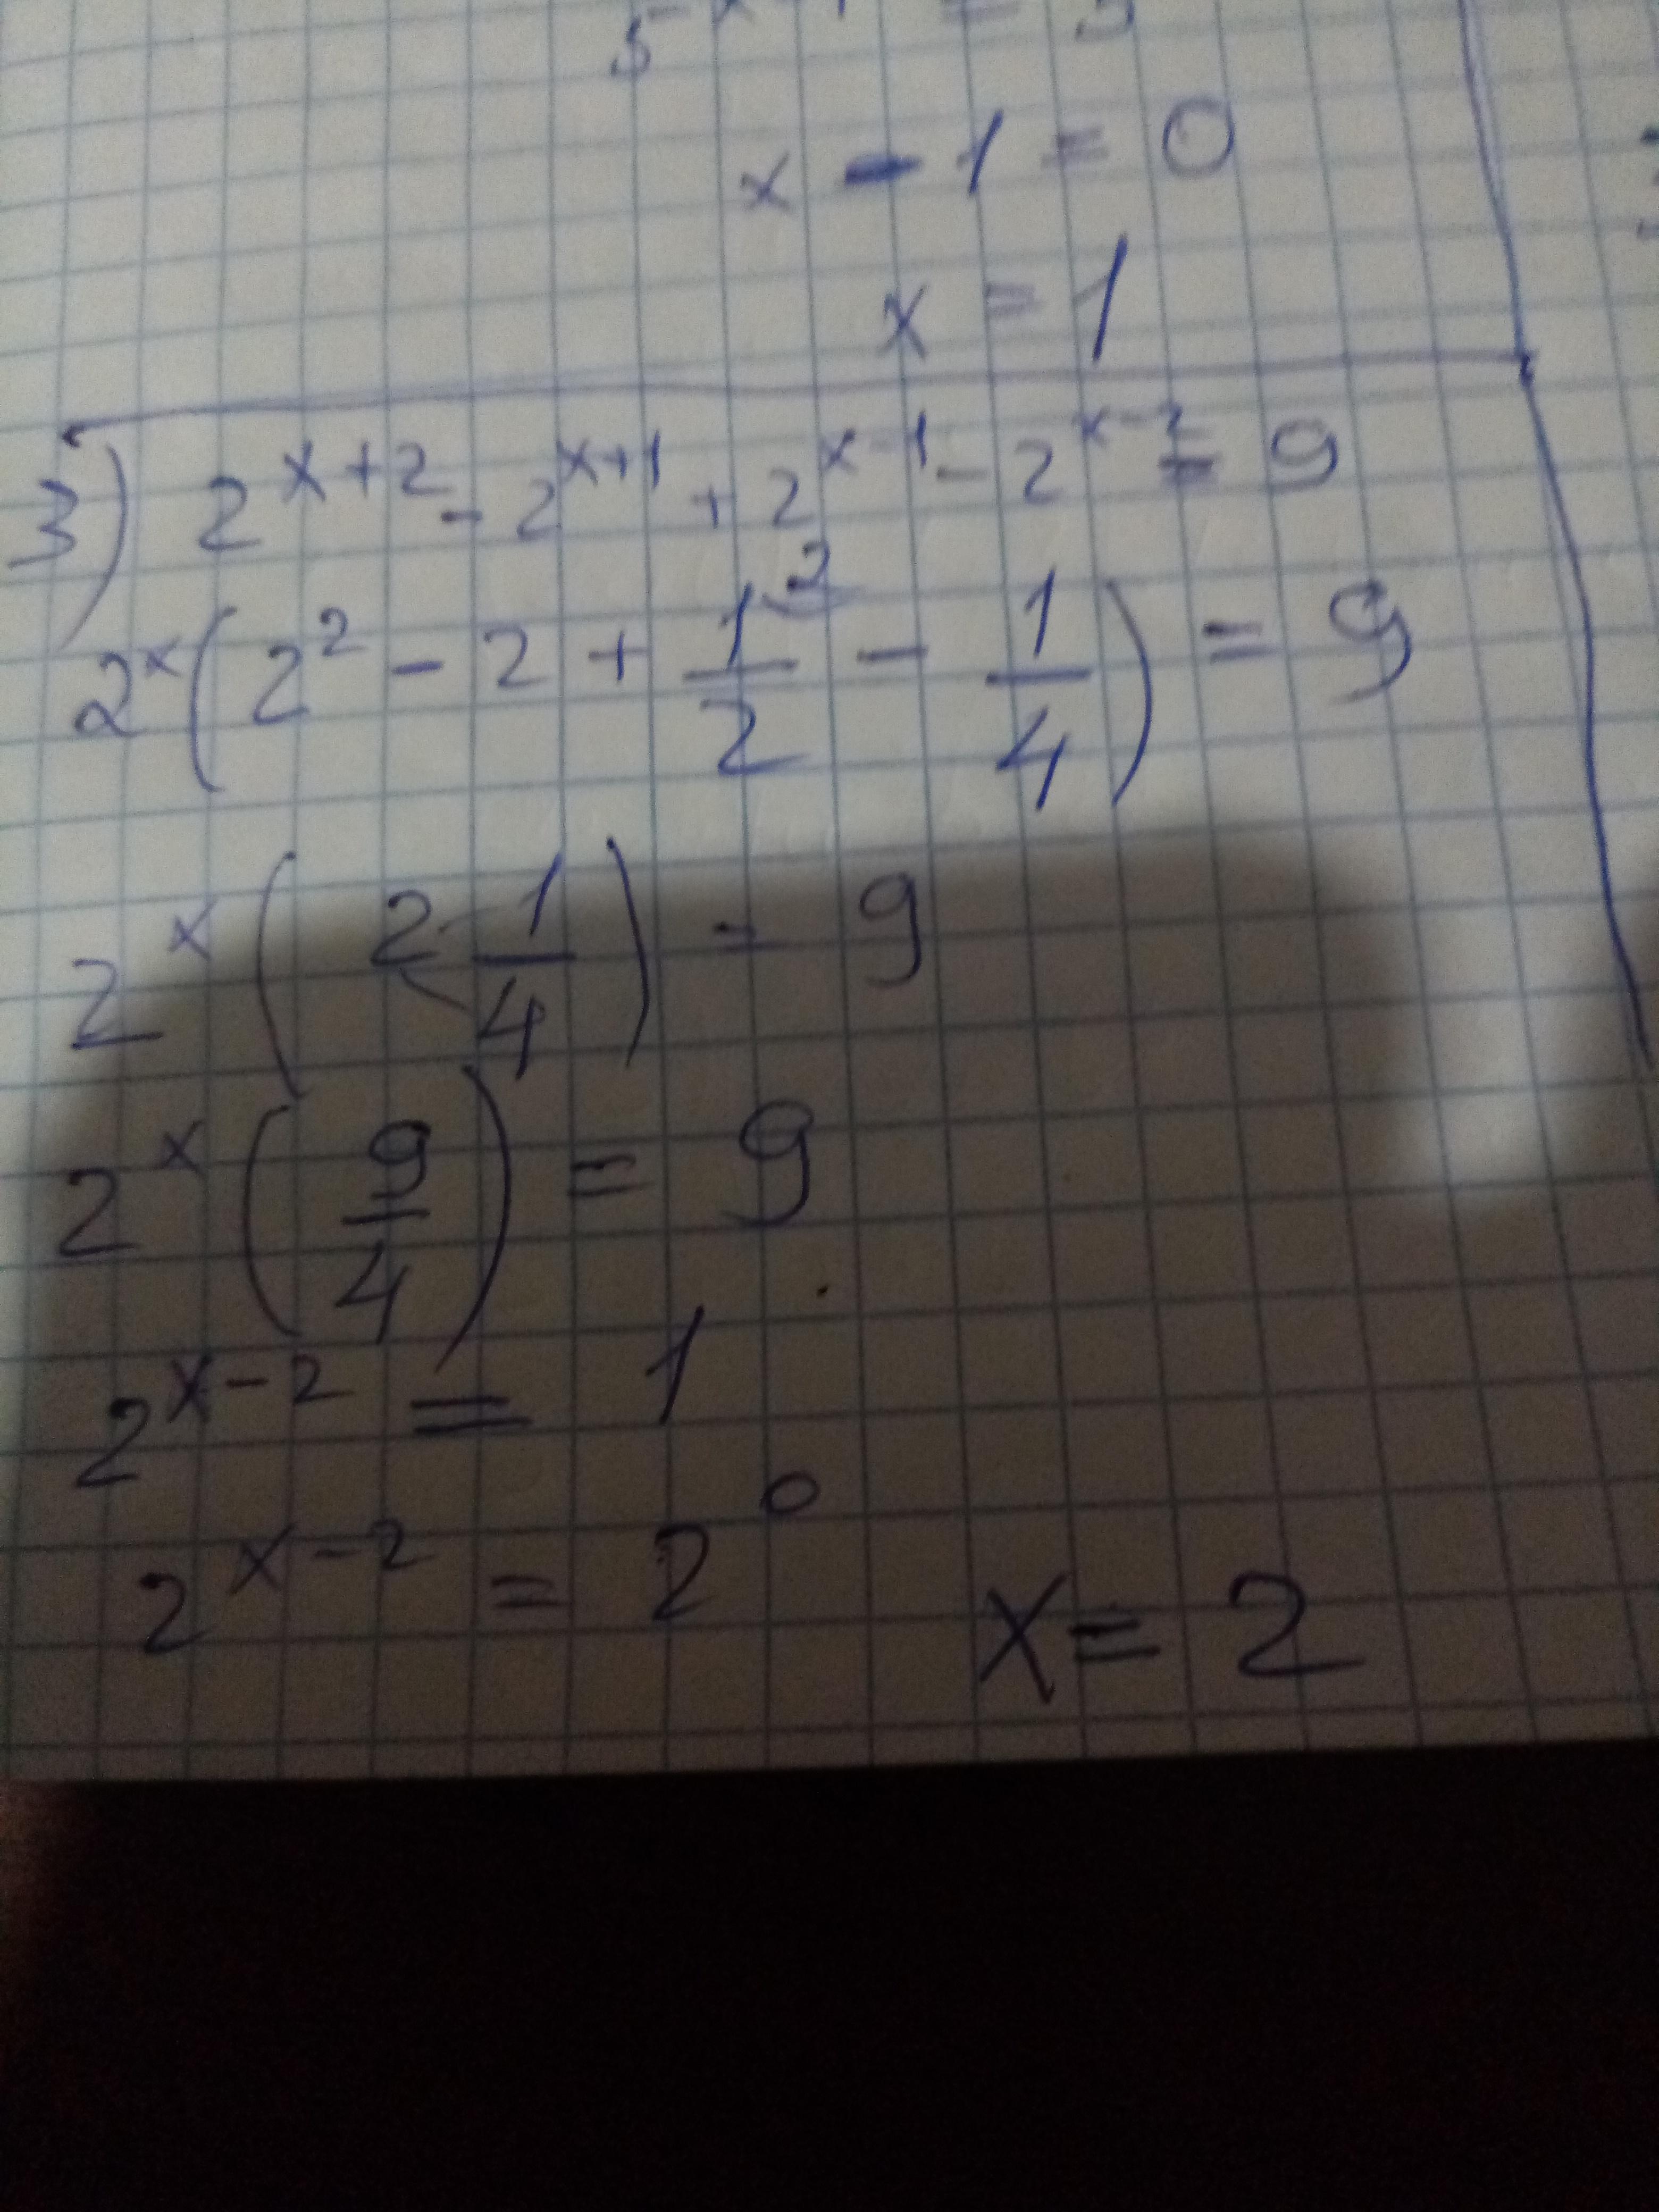 x - 1 = 0
x = 1
3) 2^{x+2} - 2^{x+1} + 2^{x-1} - 2^{x-2} = 9
2^x (2^2 - 2 + \frac{1}{2}^2 - \frac{1}{4}) = 9
2^x (2 \frac{1}{4}) = 9
2^x (\frac{9}{4}) = 9
2^{x-2} = 1
2^{x-2} = 2^0 x = 2